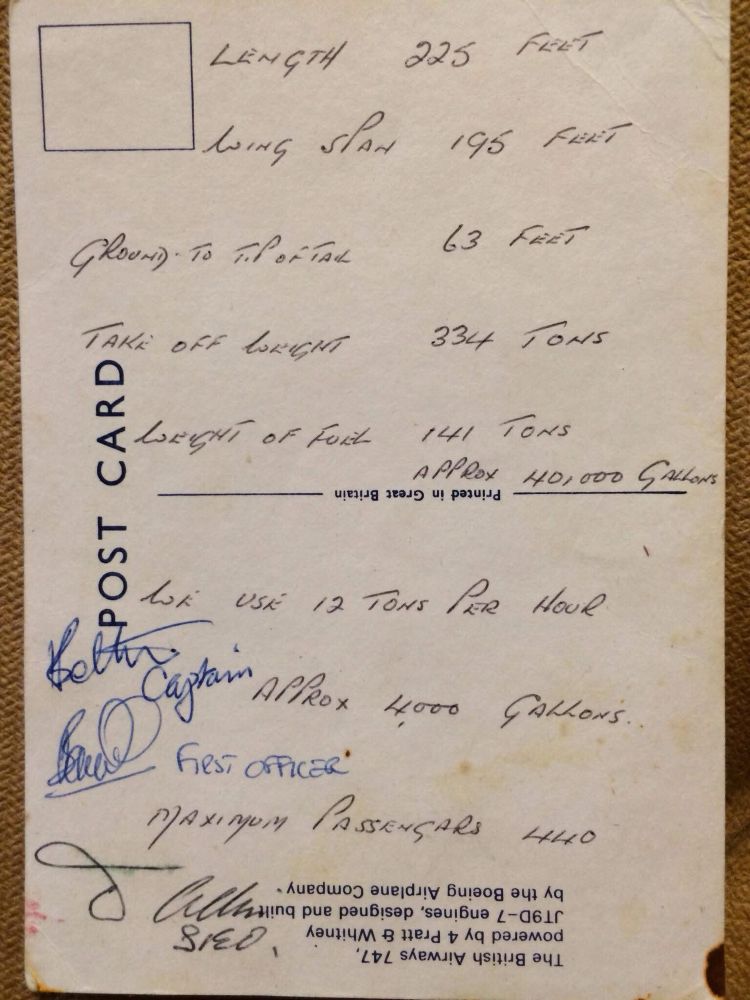 LENGTH 225 FEET
WING SPAN 195 FEET
GROUND TO TIP OF TAIL 63 FEET
TAKE OFF WEIGHT 334 TONS
WEIGHT OF FUEL 141 TONS
APPROX 40,000 GALLONS
POST CARD
Printed in Great Britain
WE USE 12 TONS PER HOUR
APPROX 4,000 GALLONS.
Captain
FIRST OFFICER
MAXIMUM PASSENGARS 440
The British Airways 747,
powered by 4 Pratt & Whitney
JT9D-7 engines, designed and built
by the Boeing Airplane Company.